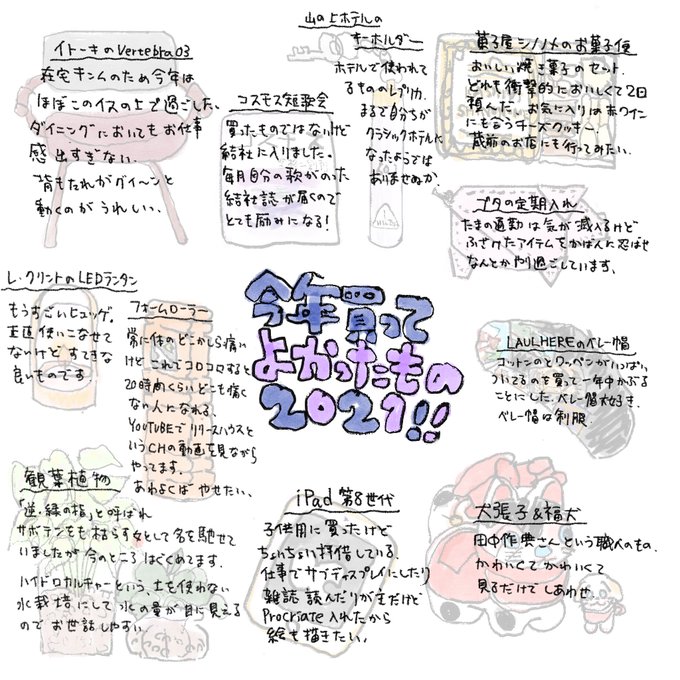 イトーキのVertebra03
在宅キンムのため今年は
ほぼこのイスの上で過ごした。
ダイニングにおいてもお仕事
感出すぎない。
背もたれがグイーンと
動くのがうれしい、
コスモス短歌会
買ったものではないけど
結社に入りました。
毎月自分の歌がのった
結社誌が届くので
とても励みになる!
山の上ホテルの
キーホルダー
ホテルで使われて
るもののレプリカ.
まるで自分ちが
クラシックホテルに
なったようでは
ありませぬか.
菓子屋シノノメのお菓子便
おいしい焼き菓子のセット.
どれも衝撃的においしくて2回
頼んだ. お気に入りは赤ワイン
にも合うチーズクッキー.
蔵前のお店にも行ってみたい.
ブタの定期入れ
たまの通勤は気が滅入るけど
ふざけたアイテムをかばんに忍ばせ
なんとかやり過ごしています、
レ・クリントのLEDランタン
もうすごいヒュッゲ。
正直使いこなせて
ないけどすてきな
良いものです.
フォームローラー
常に体のどこかしら痛い
けどこれでコロコロすると
20時間くらいどこも痛く
ない人になれる、
YOUTUBEでリリースハウスと
いうCHの動画を見ながら
やってます。
あわよくばやせたい、
今年買って
よかったもの
2021!!
LAULHEREのベレー帽
コットンのとワッペンがいっぱい
ついてるのを買って一年中かぶる
ことにした. ベレー帽大好き.
ベレー帽は制服.
観葉植物
「逆・緑の指」と呼ばれ
サボテンをも枯らす女として名を馳せて
いましたが今のところはぐくめてます.
ハイドロカルチャーという、土を使わない
水栽培にして水の量が目に見える
のでお世話しやすい.
iPad 第8世代
子供用に買ったけど
ちょいちょい拝借している.
仕事でサブディスプレイにしたり
雑誌読んだりが主だけど
Procriate入れたから
絵も描きたい.
犬張子&福犬
田中作典さんという職人のもの.
かわいくてかわいくて
見るだけでしあわせ.